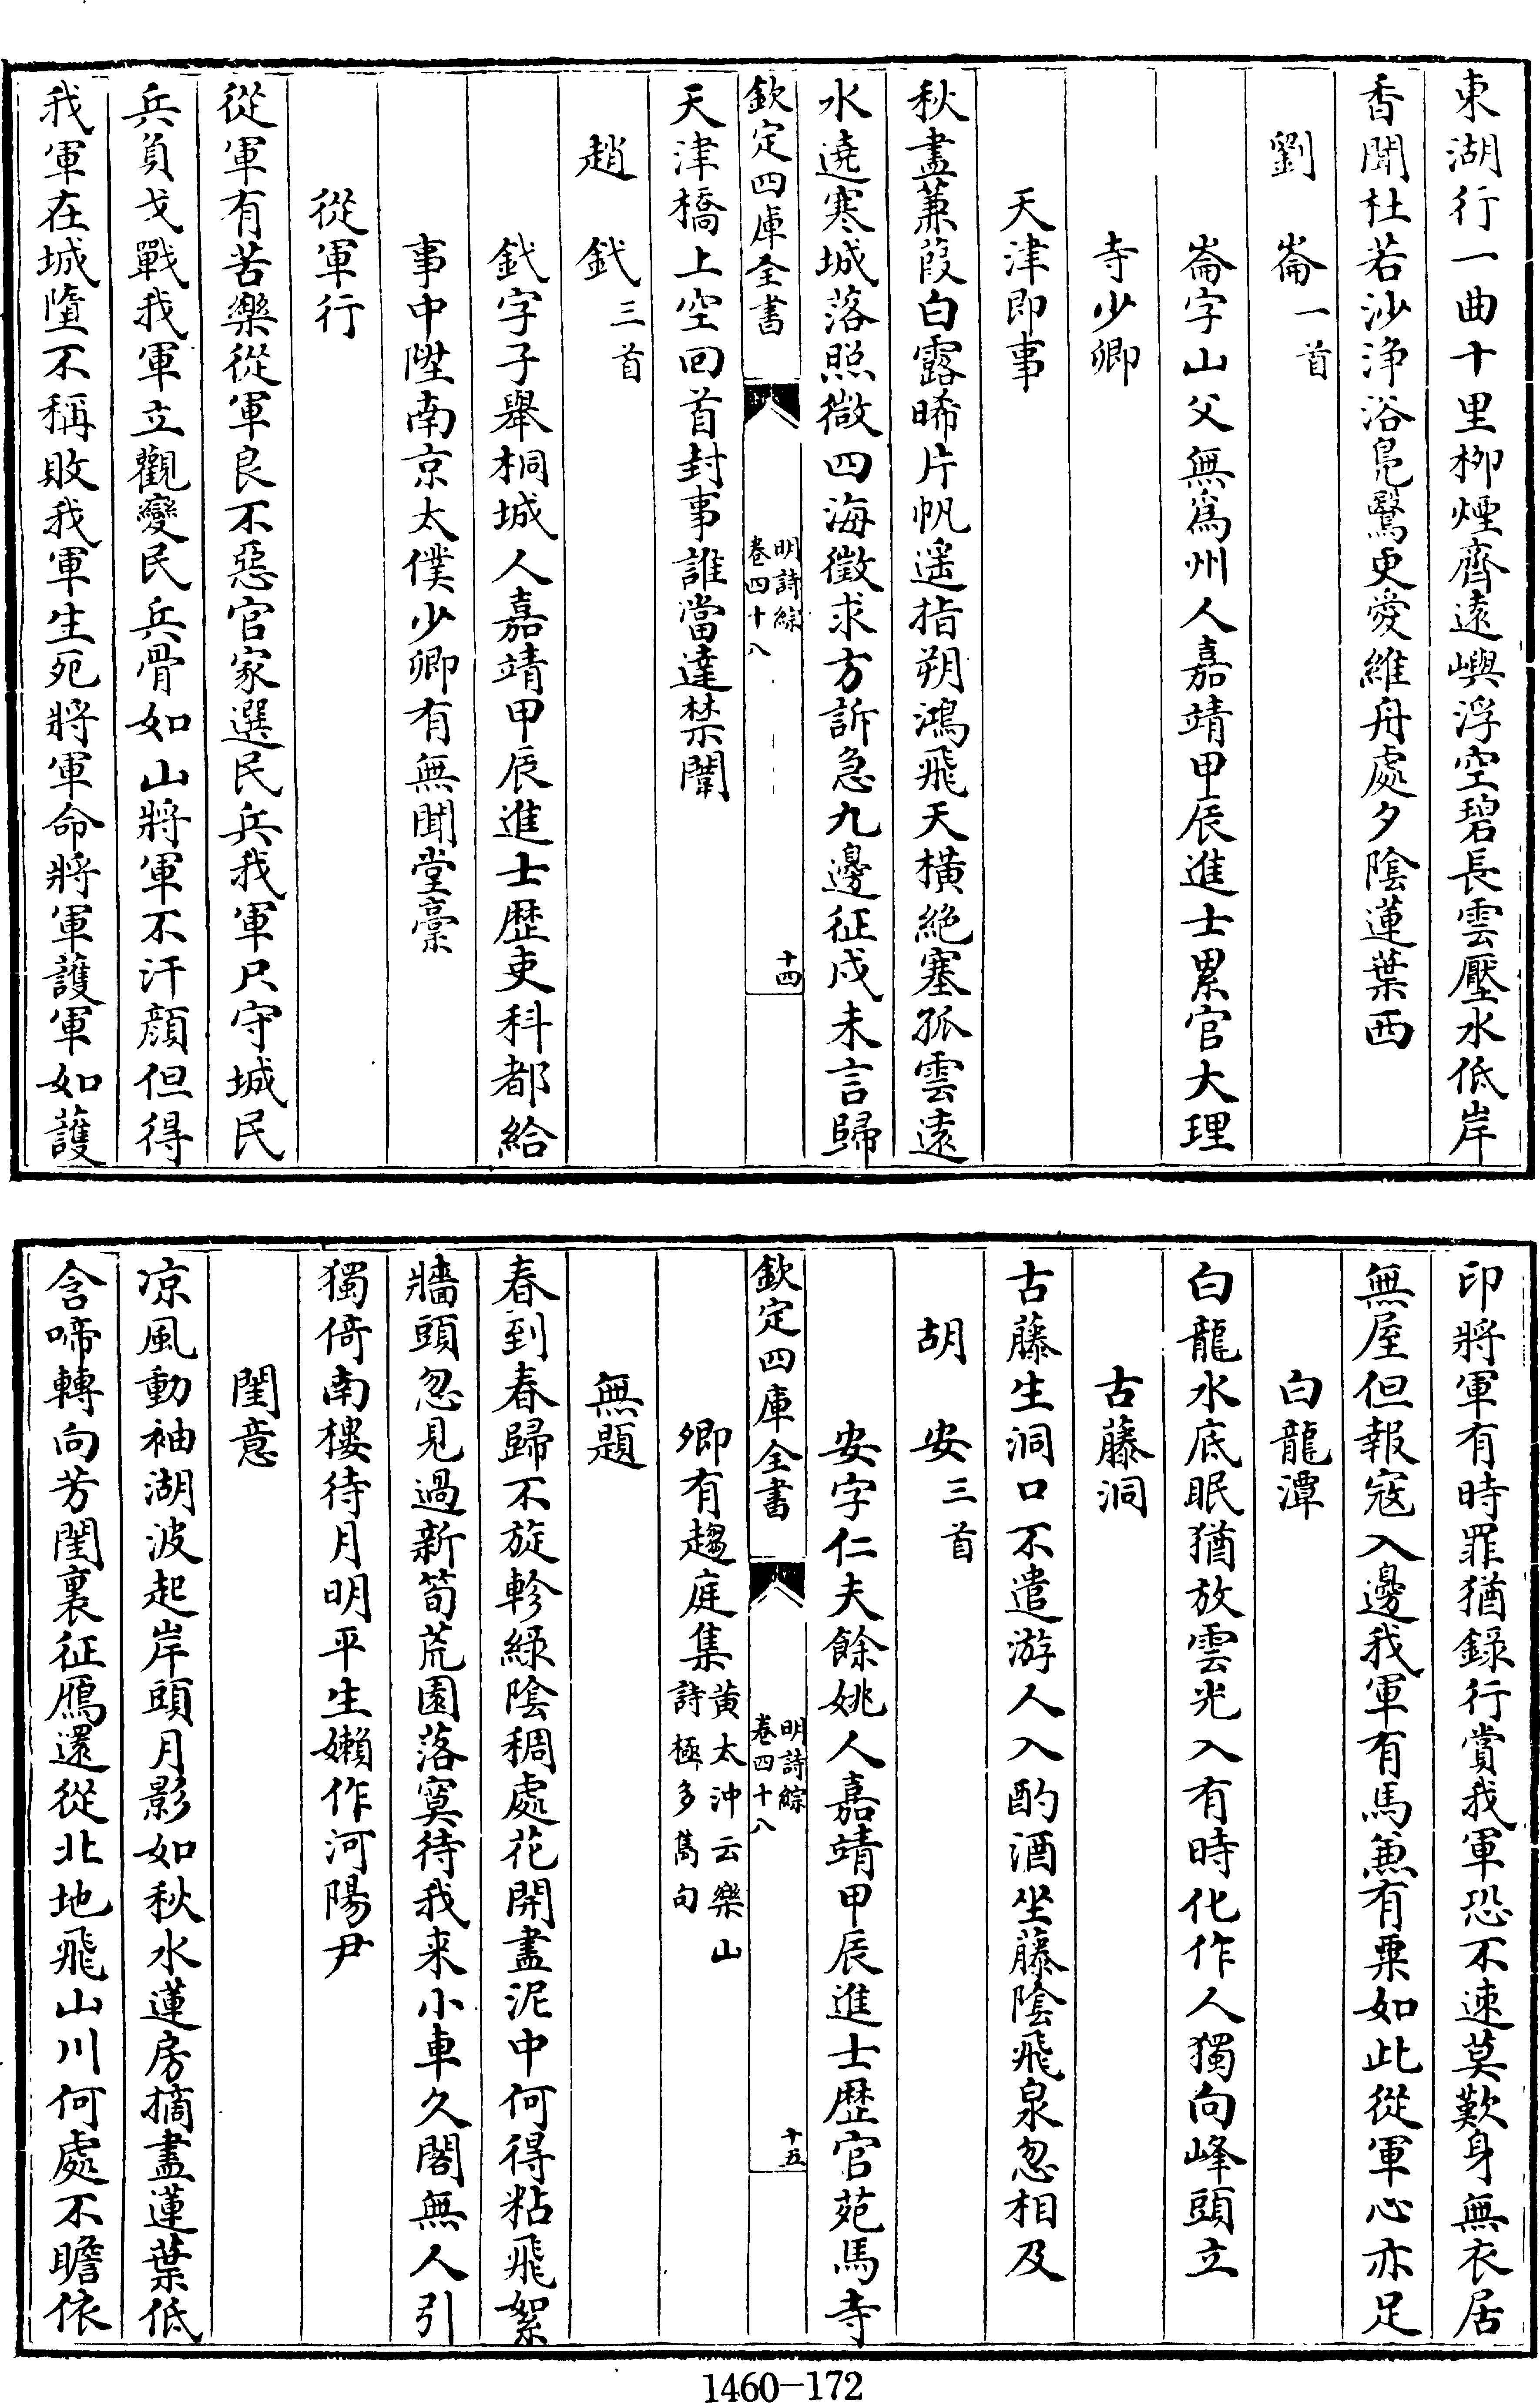 東湖行一曲十里柳煙齊遠嶼浮空碧長雲壓水低岸
香聞杜若沙浄浴鳧鷖更愛維舟處夕陰蓮葉西
劉崙一首
崙字山父無爲州人嘉靖甲辰進士累官大理
寺少卿
天津即事
秋盡蒹葭白露晞片帆遥指朔鴻飛天橫絶塞孤雲遠
水遶寒城落照微四海徵求方訴急九邊征戍未言歸
欽定四庫全書
明詩綜
卷四十八
十四
天津橋上空回首封事誰當達禁闈
趙釴三首
釴字子舉桐城人嘉靖甲辰進士歴吏科都給
事中陞南京太僕少卿有無聞堂稾
從軍行
從軍有苦樂從軍良不惡官家選民兵我軍只守城民
兵負戈戰我軍立觀變民兵骨如山將軍不汗顔但得
我軍在城墮不稱敗我軍生死將軍命將軍護軍如護
印將軍有時罪猶錄行賞我軍恐不速莫歎身無衣居
無屋但報寇入邊我軍有馬兼有粟如此從軍心亦足
白龍潭
白龍水底眠猶放雲光入有時化作人獨向峰頭立
古藤洞
古藤生洞口不遣游人入酌酒坐藤陰飛泉忽相及
胡安三首
安字仁夫餘姚人嘉靖甲辰進士歴官苑馬寺
欽定四庫全書
明詩綜
卷四十八
十五
卿有趨庭集黄太沖云樂山
詩極多雋句
無題
春到春歸不旋軫緑陰稠處花開盡泥中何得粘飛絮
牆頭忽見過新筍荒園落寞待我来小車久閣無人引
獨倚南樓待月明平生嬾作河陽尹
閨意
凉風動袖湖波起岸頭月影如秋水蓮房摘盡蓮葉低
含啼轉向芳閨裏征鴈還從北地飛山川何處不瞻依
1460—172